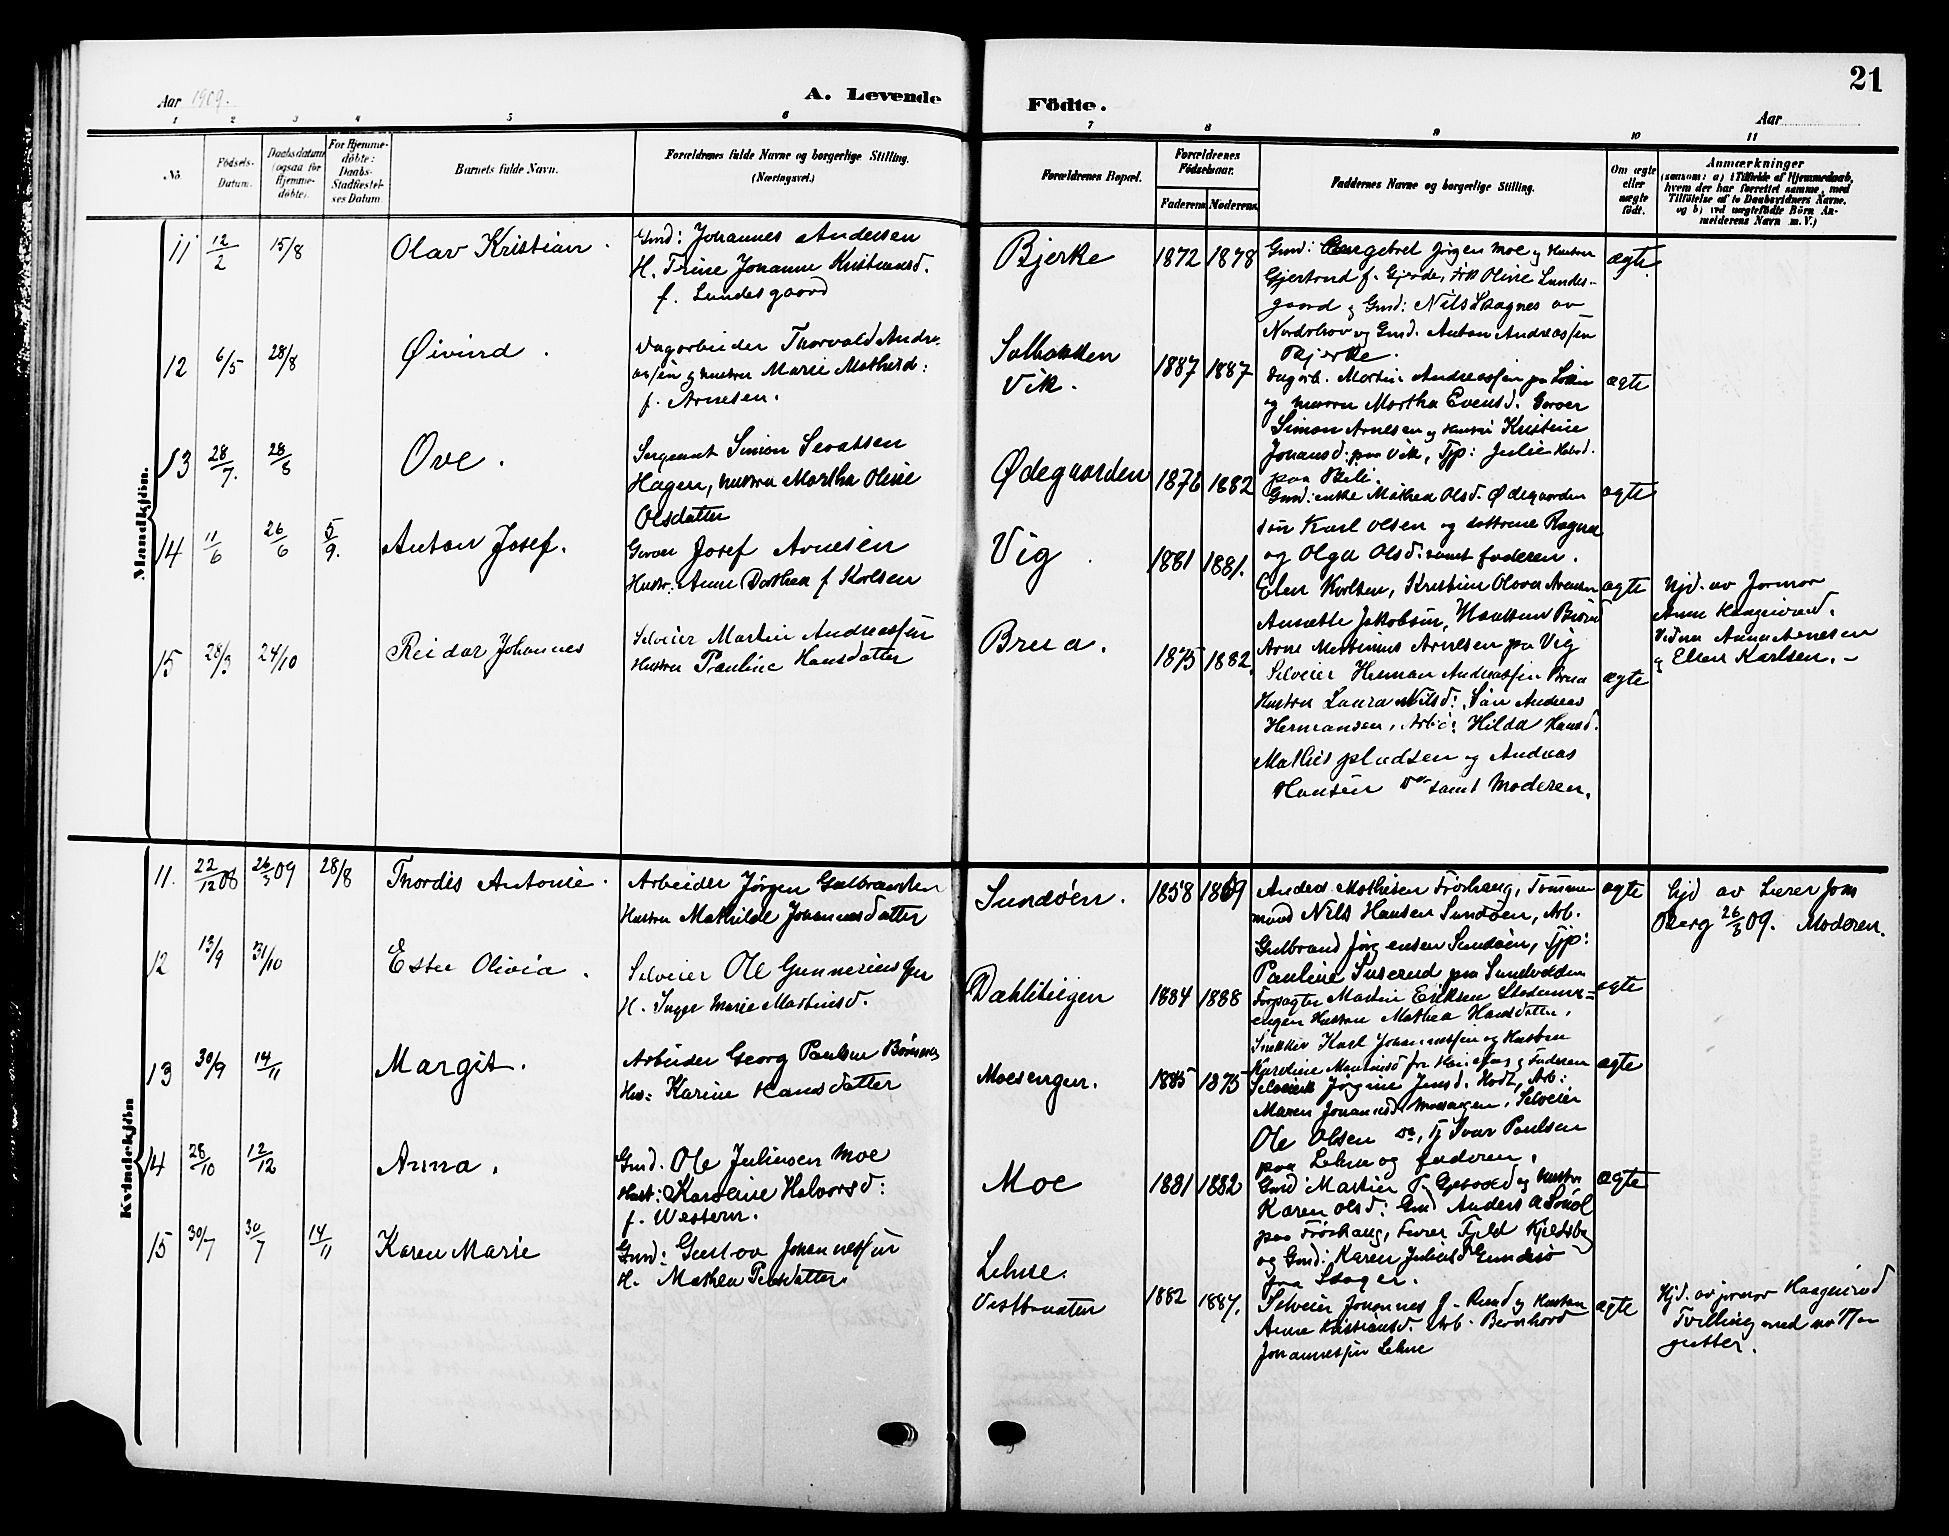 21
Aar 1909.
A. Levende
Födte.
Aar
1 2 3 4 5 6 7 8 9 10 11
No.
Födsels-
Datum.
Daabsdatum
(ogsaa for
Hjemme-
döbte).
For Hjemme-
döbte:
Daabs-
Stadfæstel-
ses Datum
Barnets fulde Navn.
Forældrenes fulde Navne og borgerlige Stilling.
(Næringsvei.)
Forældrenes Bopæl.
Forældrenes
Födselsaar.
Faderens. Moderens.
Faddernes Navne og borgerlige Stilling.
Om ægte
eller
uægte
født.
Anmærkninger
(saasom: a) i Tilfælde af Hjemmedaab,
hvem der har forrettet samme, med
Tilföielse af to Daabsvidners Navne,
og b) ved uægtefödte Börn An-
melderens Navn m. V.)
Mandkjön.
11 12/2 15/8 Olav Kristian.
Gmd: Johannes Andersen
H. Trine Johanne Kristiansd.
f. Lundesgaard
Bjerke 1872 1878
Gmd: Engebret Jörgen Moe og Hustru
Gjertrud f. Gjerde, Frk Oline Lundes-
gaard og Gmd: Nils Skagnes av
Norderhov og Gmd. Anton Andreassen
Bjerke.
ægte
12 6/5 28/8 Øivind.
Dagarbeider Thorvald Andre-
assen og Hustru Marie Mathisd:
f. Arnesen.
Solbakken
Vik.
1887 1887
Dagarb. Martin Andreassen
og Hustru Martha Evensd. Garver
Simon Arnesen og Hustru Kristine
Johansd. paa Vik, Tjp: Julie
paa Bili.
ægte
13 28/7. 28/8 Ove.
Sergeant Simon
Hagen, Hustru Martha Oline
Olsdatter
Ødegaarden 1876 1882
Gmd:enke Mathea Olsd. Ødegaarden
sön Karl Olsen og döttrene Ragna
og Olga Olsd. samt faderen.
ægte
14 11/6 26/6 5/9. Anton Josef.
Garver Josef Arnesen
Hustr: Anne Dorthea f Karlsen
Vig 1881 1881.
Elen Karlsen, Kristine Olava Arnesen
Annette Jakobsen,
Arne Martinius Arnesen paa Vig
ægte
Hjd. av Jormor
Anne Haagenrud.
Vidner Anna Arnesen
og Ellen Karlsen.-
15 28/3 24/10 Reidar Johannes
Selveier Martin Andreassen
Hustru Pauline Hansdatter
Brua. 1875 1882.
Selveier Herman Andreassen Brua
Hustru Laura Nilsd: Sön Andreas
Hermansen, Arb: Hilda Hansd.
Mathiespladsen og Andreas
Hansen Do samt Moderen.
ægte
Kvindekjön
11. 22/12 08 26/3 09 28/8 Thordis Antonie.
Arbeider Jörgen Gulbrandsen
Hustru Mathilde Johannesdatter
Sundöen. 1858 1869
Anders Mathisen Frörhaug, Tömmer
mand Nils Hansen Sundöen, Arb.
Gulbrand Jörgensen Sundöen, Tjp:
Pauline Suserud paa Sundvolden
ægte
Hjd av Lærer Jom
Berg 26/3 09. Moderen.
12 13/9 31/10 Ester Olivia.
Selveier Ole Gunneriussen
H. Inger Marie Martinsd.
Dahlibeigen 1884 1888
Forpagter Martin Eriksen
engen Hustru Mathea Hansdatter,
Snekker Karl Johannessen og Hustru
Karoline fra og Faderen
ægte
13 30/9 14/11 Margit.
Arbeider Georg Paulsen
Hus: Karine Hansdatter
Moesengen. 1885 1875
Selveier Jörgine Jensd. Hodt, Arb:
Maren Johannesd. Moesengen, Selveier
Ole Olsen Do, Tj Ivar Paulsen
paa Lehne og faderen.
ægte
14 28/10 12/12 Anna.
Gmd. Ole Juliussen Moe
Hust: Karoline Halvorsd:
f. Western.
Moe 1881 1882
Gmd: Martin og Hustru
Karen Olsd: Gmd Anders A
paa Frörhaug, Furer
og Gmd: Karen
paa
ægte
15 30/7 30/7 14/11 Karen Marie
Gmd: Gustav Johannessen
H. Mathea Persdatter.
Lehne.
Vestbraaten
1882 1887.
Selveier Johannes J. Rud og Hustru
Anne Kristiansd. Arb. Bernhard
Johannessen Lehne
ægte
Hjd. av jormor Haagenrud
Tvilling med no 17 av
gutter.